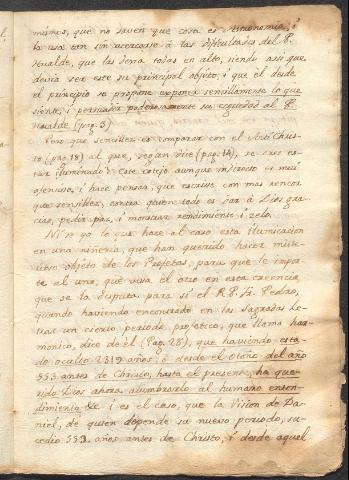 mismos, que no saven que cosa es Astronomia, i
la usa tan sin acercarse à las dificultades del P.
Ilualde, que las deja todas en alto, siendo assi que
devia ser este su principal objeto, i que el desde
el principio se propone exponer sencillamente lo que
siente, i persuadir poderosamente su ceguedad al P.
Ilualde (pag. 3)
Pero que sencillez es comparar con el Ante Chris-
to (pag. 18) al que, segun dice (pag. 14), se cree es-
tar iluminado? Este cotejo aunque indirecto es mui
ofensivo, i hace pensar, que escrive con mas rencor
que sencillez, contra quien todo es dar à Dios gra-
cias, pedir paz, i mostrar rendimiento i zelo.
Ni se yo lo que hace al caso esta iluminacion
en una niñeria, que han querido hacer mist-
erioso objeto de los Profetas, para que le impor-
te al uno, que viva el otro en esta creencia,
que se la disputa para si el R. P. Fr. Pedro,
quando haviendo encontrado en las sagradas Le-
tras un cierto periodo profetico, que llama har-
monico, dice de èl (Pag. 28), que haviendo esta-
do oculto 2319 años, ò desde el Otoño del año
553 antes de Christo, hasta el presente, ha que-
rido Dios ahora alumbrarlo al humano enten-
dimiento &c i es el caso, que la Vision de Da-
niel, de quien depende su nuevo periodo, su-
cedio 553 años antes de Christo, i desde aquel